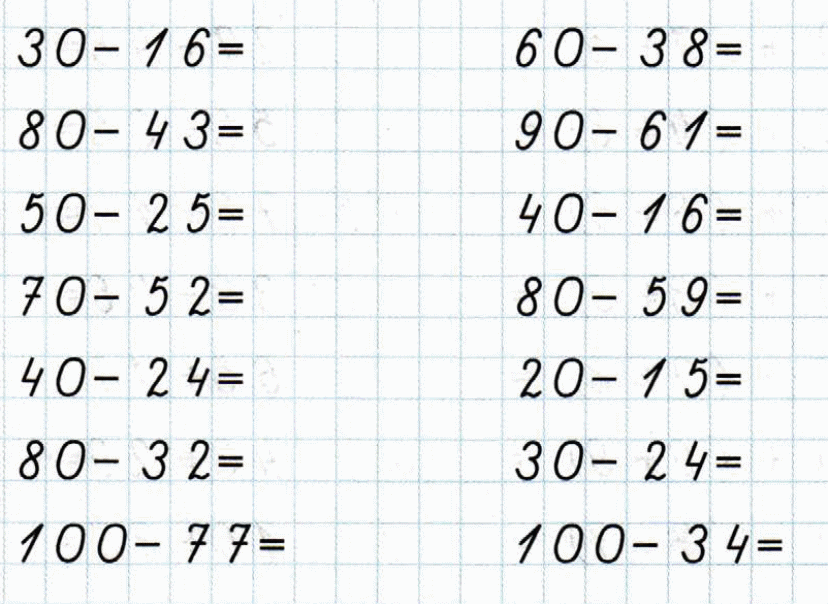 30- 16=
80- 43=
50- 25=
70- 52=
40- 24=
80- 32=
100- 77=
60- 38=
90- 61=
40- 16=
80- 59=
20- 15=
30- 24=
100- 34=